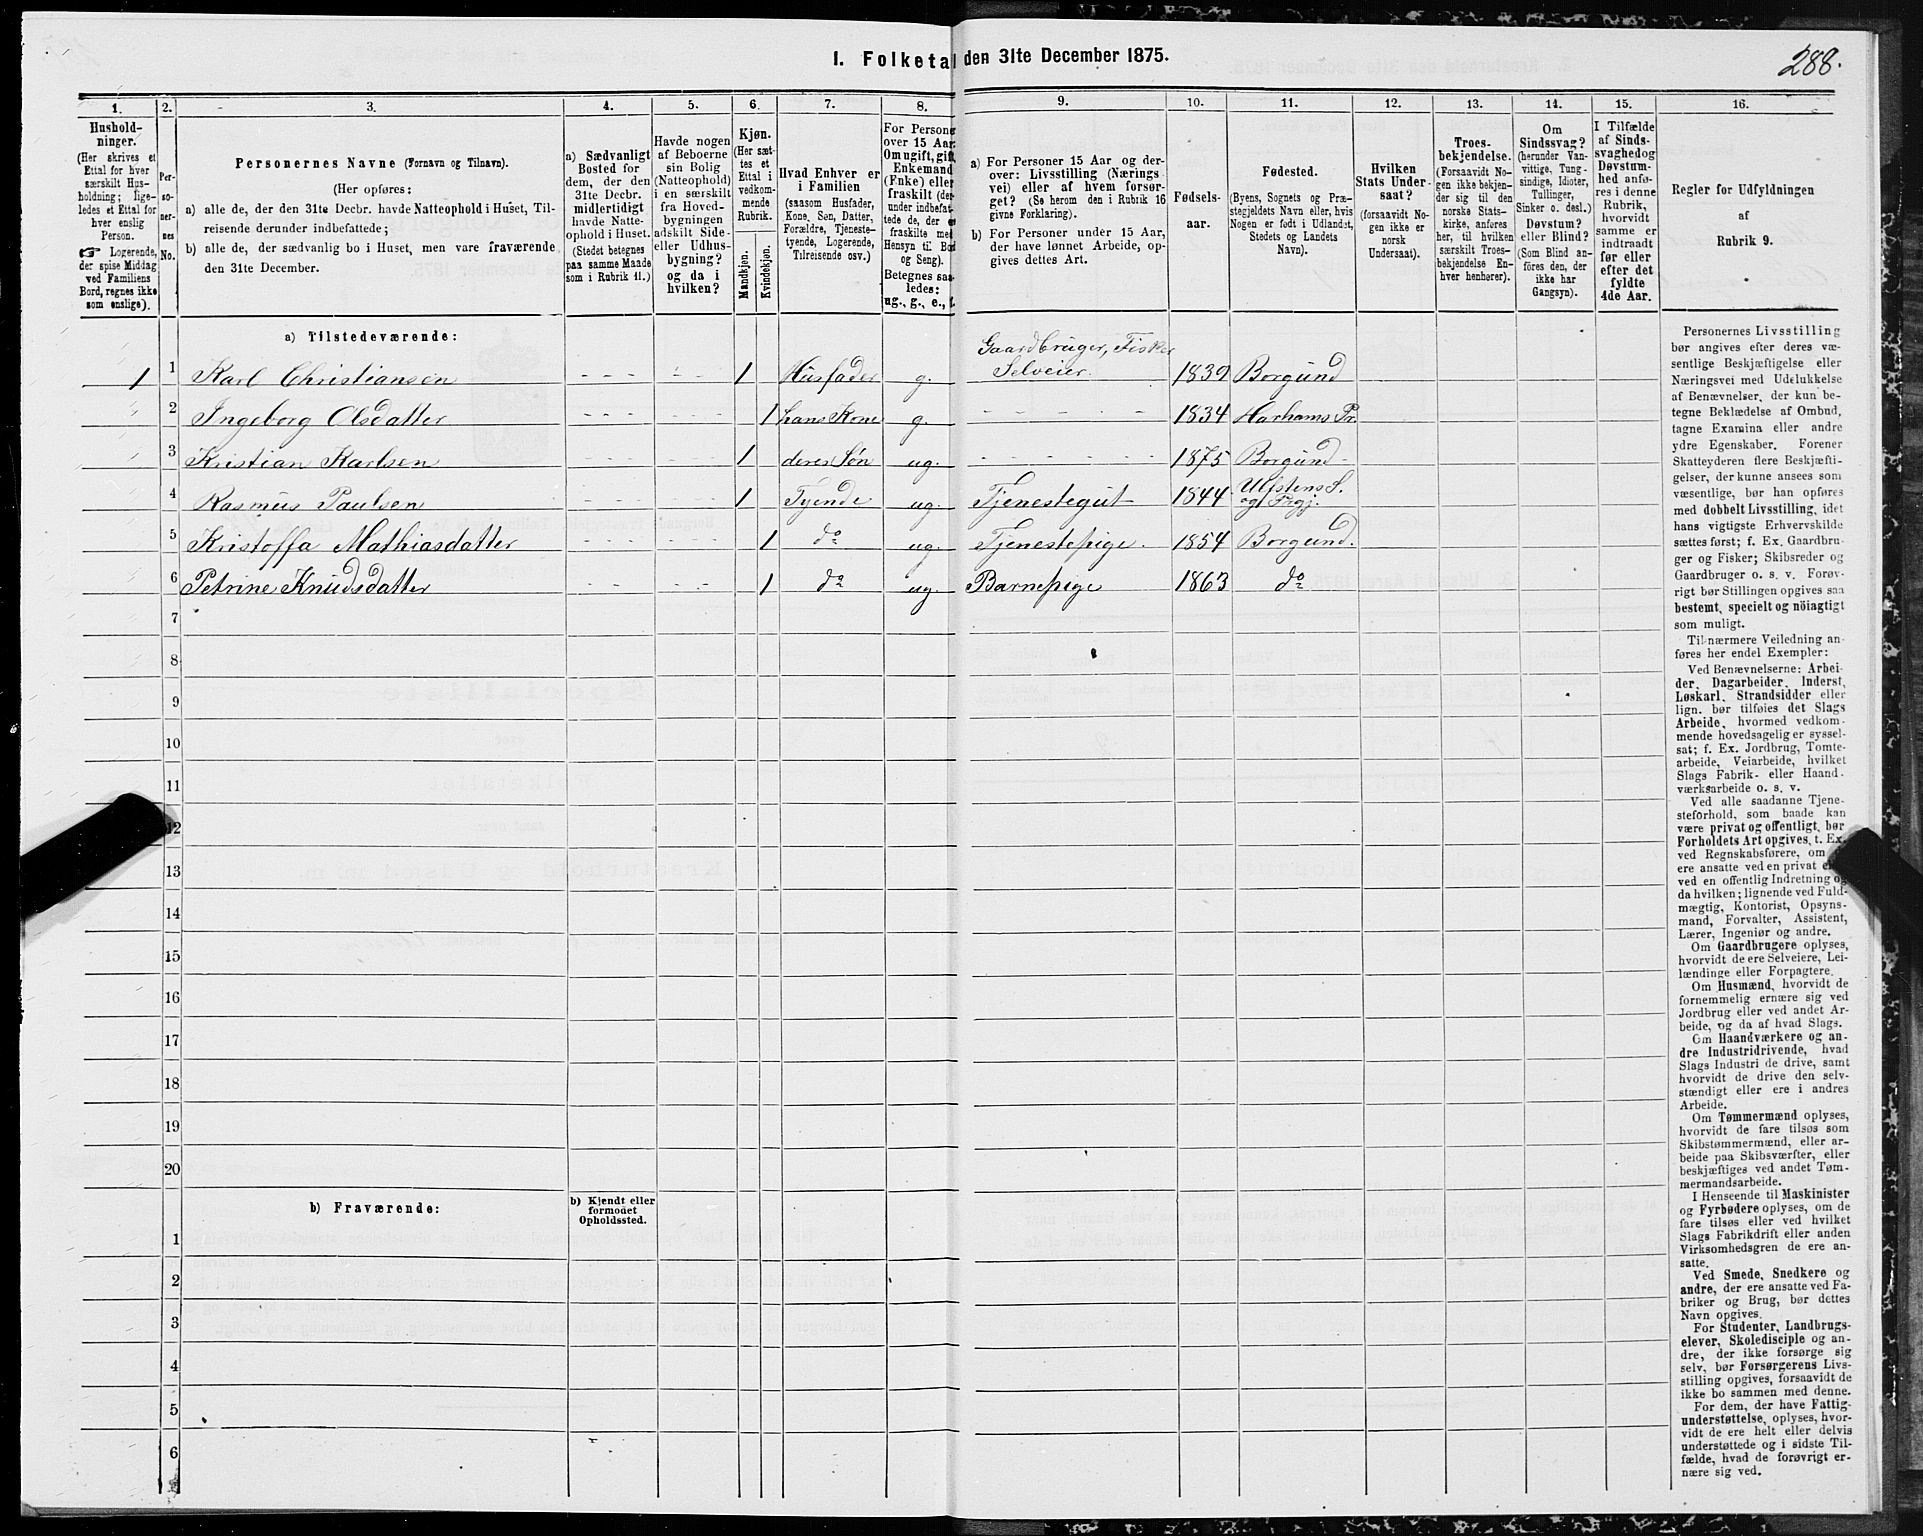 I. Folketal den 31te December 1875.
288.
1. 2. 3. 4. 5. 6. 7. 8. 9. 10. 11. 12. 13. 14. 15. 16.
Hushold-
ninger.
(Her skrives et
Ettal for hver
særskilt Hus-
holdning; lige-
ledes et Ettal for
hver enslig
Person.
Logerende,
der spise Middag
ved Familiens
Bord, regnes ikke
som enslige).
Per-
so-
ner-
nes
No.
Personernes Navne (Fornavn og Tilnavn).
(Her opføres:
a) alle de, der den 31te Decbr. havde Natteophold i Huset, Til-
reisende derunder indbefattede;
b) alle de, der sædvanlig bo i Huset, men vare fraværende
den 31te December.
a) Sædvanligt
Bosted for
dem, der den
31te Decbr.
midlertidigt
havde Natte-
ophold i Huset.
(Stedet betegnes
paa samme Maade
som i Rubrik 11.)
Havde nogen
af Beboerne
sin Bolig
(Natteophold)
i en særskilt
fra Hoved-
bygningen
adskilt Side-
eller Udhus-
bygning?
og da i
hvilken?
Kjøn.
(Her sæt-
tes et
Ettal i
vedkom-
mende
Rubrik.
Mandkjøn.
Kvindekjøn.
Hvad Enhver er
i Familien
(saasom Husfader,
Kone, Søn, Datter,
Forældre, Tjeneste-
tyende, Logerende,
Tilreisende osv.)
For Persone
over 15 Aar:
Om ugift, gift,
Enkemand
(Enke) eller
fraskilt (der-
under indbefat-
tede de, der ere
fraskilte med
Hensyn til Bord
og Seng).
Betegnes saa-
ledes:
ug., g., e., f.
a) For Personer 15 Aar og der-
over: Livsstilling (Nærings-
vei) eller af hvem forsør-
get? (Se herom den i Rubrik 16
givne Forklaring).
b) For Personer under 15 Aar,
der have lønnet Arbeide, op-
gives dettes Art.
Fødsels-
aar.
Fødested.
(Byens, Sognets og Præ-
stegjeldets Navn eller, hvis
Nogen er født i Udlandet,
Stedets og Landets
Navn).
Hvilken
Stats Under-
saat?
(forsaavidt No-
gen ikke er
norsk
Undersaat).
Troes-
bekjendelse.
(Forsaavidt No-
gen ikke bekjen-
der sig til den
norske Stats-
kirke, anføres
her, til hvilken
særskilt Troes-
bekjendelse En-
hver henhører).
Om
Sindssvag?
(herunder Van-
vittige, Tung-
sindige, Idioter,
Tullinger,
Sinker o. desl.)
Døvstum?
eller Blind?
(Som Blind an-
føres den, der
ikke har
Gangsyn).
I Tilfælde
af Sinds-
svaghed og
Døvstum-
hed anfø-
res i denne
Rubrik,
hvorvidt
samme er
indtraadt
før eller
efter det
fyldte
4de Aar.
Regler for Udfyldningen
af
Rubrik 9.
a) Tilstedeværende:
Gaardbruger, Fisker
1 1 Karl Christiansen 1 Husfader g. Selveier. 1839 Borgund
2 Ingeborg Olsdatter 1 hans Kone g. 1834 Harhams Pr.
3 Kristian Karlsen 1 deres Søn ug. 1875 Borgund
4 Rasmus Paulsen 1 Tyende ug. Tjenestegut 1844 Ulfstens S. og Prgj.
5 Kristoffa Mathiasdatter 1 do ug. Tjenestepige. 1854 Borgund.
6 Petrine Knudsdatter 1 do ug. Barnepige 1863 do
7
8
9
10
11
12
13
14
15
16
17
18
19
20
b) Fraværende:
b) Kjendt eller
formodet
Opholdssted.
1
2
3
4
5
6
Personernes Livsstilling
bør angives efter deres væ-
sentlige Beskjæftigelse eller
Næringsvei med Udelukkelse
af Benævnelser, der kun be-
tegne Beklædelse af Ombud,
tagne Examina eller andre
ydre Egenskaber. Forener
Skatteyderen flere Beskjæfti-
gelser, der kunne ansees som
væsentlige, bør han opføres
med dobbelt Livsstilling, idet
hans vigtigste Erhvervskilde
sættes først; f. Ex. Gaardbru-
ger og Fisker; Skibsreder og
Gaardbruger o. s. v. Forøv-
rigt bør Stillingen opgives saa
bestemt, specielt og nöiagtigt
som muligt.
Til nærmere Veiledning an-
føres her endel Exempler:
Ved Benævnelserne: Arbei-
der, Dagarbeider, Inderst,
Løskarl, Strandsidder eller
lign. bør tilføies det Slags
Arbeide, hvormed vedkom-
mende hovedsagelig er syssel-
sat; f. Ex. Jordbrug, Tomte-
arbeide, Veiarbeide, hvilket
Slags Fabrik- eller Haand-
værksarbeide o. s. v.
Ved alle saadanne Tjene-
steforhold, som baade kan
være privat og offentligt, bør
Forholdets Art opgives, t. Ex.
ved Regnskabsførere, om de
ere ansatte ved en privat eller
ved en offentlig Indretning og
da hvilken; lignende ved Fuld-
mægtig, Kontorist, Opsyns-
mand, Forvalter, Assistent,
Lærer, Ingeniør og andre.
Om Gaardbrugere oplyses,
hvorvidt de ere Selveiere, Lei-
lændinge eller Forpagtere.
Om Husmænd, hvorvidt de
fornemmelig ernære sig ved
Jordbrug eller ved andet Ar-
beide, og da af hvad Slags.
Om Haandværkere og an-
dre Industridrivende, hvad
Slags Industri de drive, samt
hvorvidt de drive den selv-
stændigt eller ere i andres
Arbeide.
Om Tømmermænd oplyses,
hvorvidt de fare tilsøs som
Skibstømmermænd, eller ar-
beide paa Skibsværfter, eller
beskjæftiges ved andet Tøm-
mermandsarbeide.
I Henseende til Maskinister
og Fyrbødere oplyses, om de
fare tilsøs eller ved hvilket
Slags Fabrikdrift eller anden
Virksomhedsgren de ere an-
satte.
Ved Smede, Snedkere og
andre, der ere ansatte ved Fa-
briker og Brug, bør dettes
Navn opgives.
For Studenter, Landbrugs-
elever, Skoledisciple og an-
dre, der ikke forsørge sig
selv, bør Forsørgerens Livs-
stilling opgives, forsaavidt de
ikke bo sammen med denne.
For dem, der have Fattig-
understøttelse, oplyses, hvor-
vidt de ere helt eller delvis
understøttede og i sidste Til-
fælde, hvad de forøvrigt er-
nære sig ved.